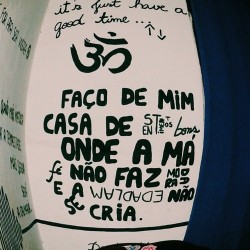 it's just have a
good time...
ॐ
FAÇO DE MIM
CASA DE SENTIMENTOS bons,
ONDE A MÁ
fé NÃO FAZ MORADA
E A MALDADE NÃO
SE CRIA.